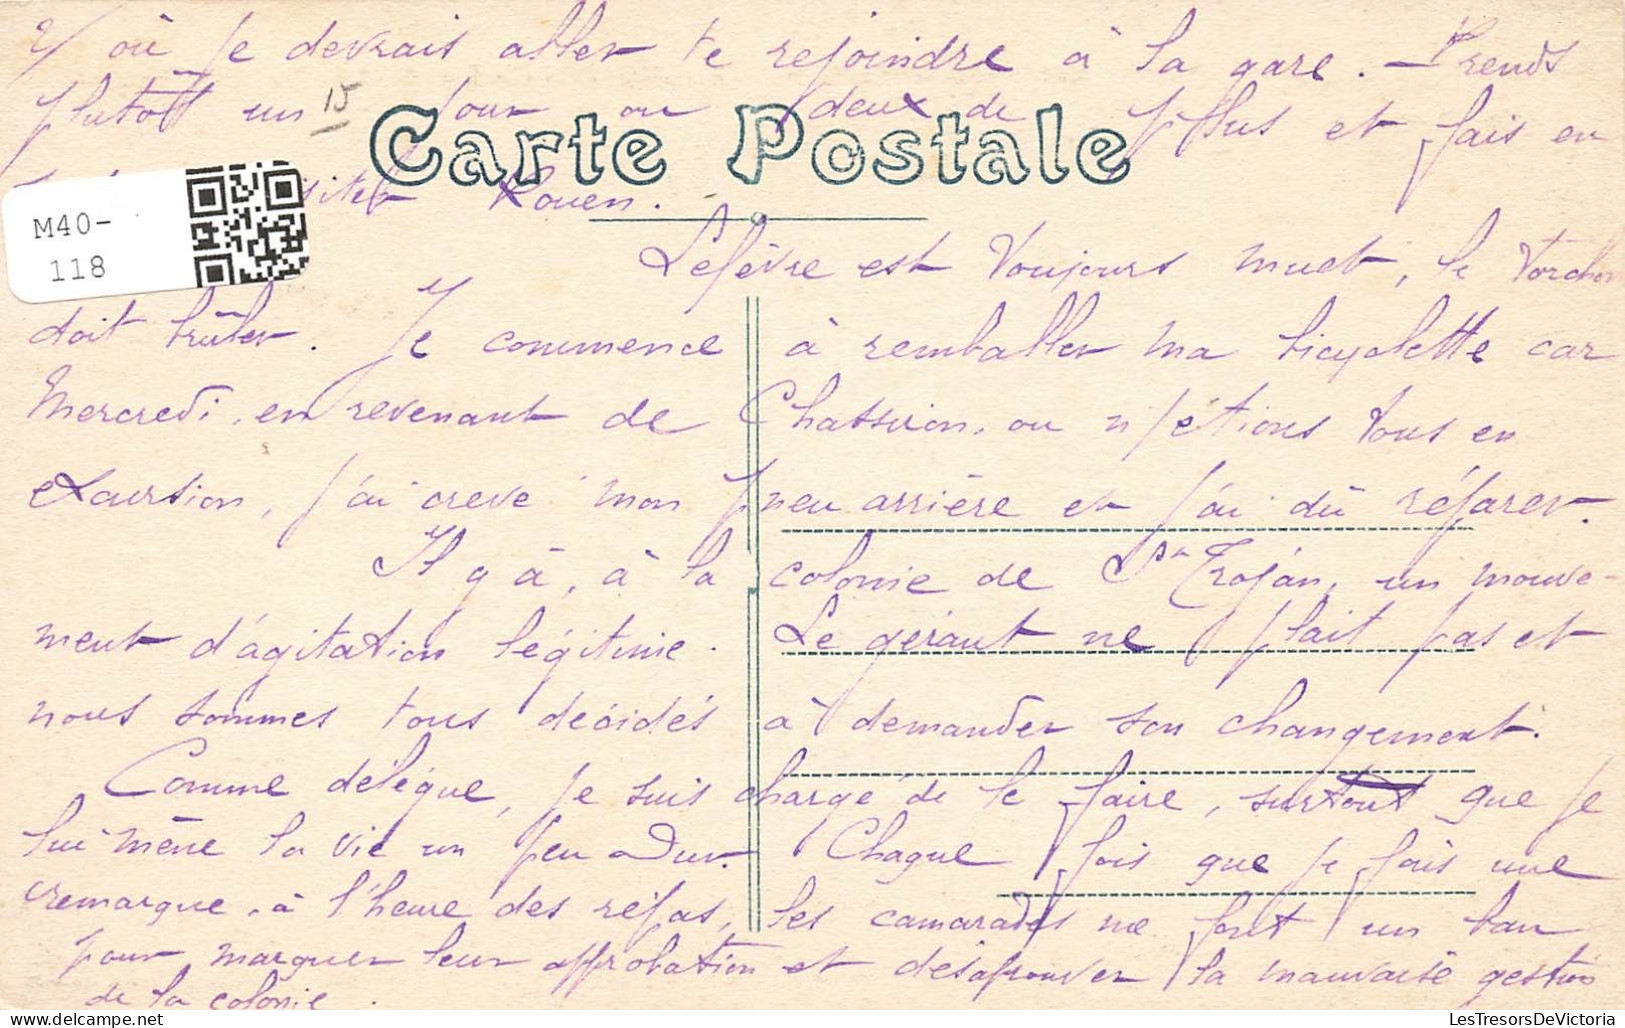 où je devrais aller te rejoindre à la gare. — Prends
plutôt un jour ou deux de plus et fais en
15
Carte Postale
Rouen.
M40-
118
Lefèvre est toujours muet, le torchon
doit brûler. Je commence à remballer ma bicyclette car
Mercredi, en revenant de Chassiron, ou n/étions tous en
excursion, j'ai crevé mon pneu arrière et j'ai dû réparer.
Il y â, à la colonie de St Trojan, un mouve-
ment d'agitation légitime. Le gérant ne plait pas et
nous sommes tous décidés à demander son changement.
Comme délégué, je suis chargé de le faire, surtout que je
lui mène la vie un peu dur. Chaque fois que je fais une
remarque, à l'heure des repas, les camarades me font un ban
pour marquer leur approbation et désaprouver la mauvaise gestion
de la colonie.
LesTresorsDeVictoria